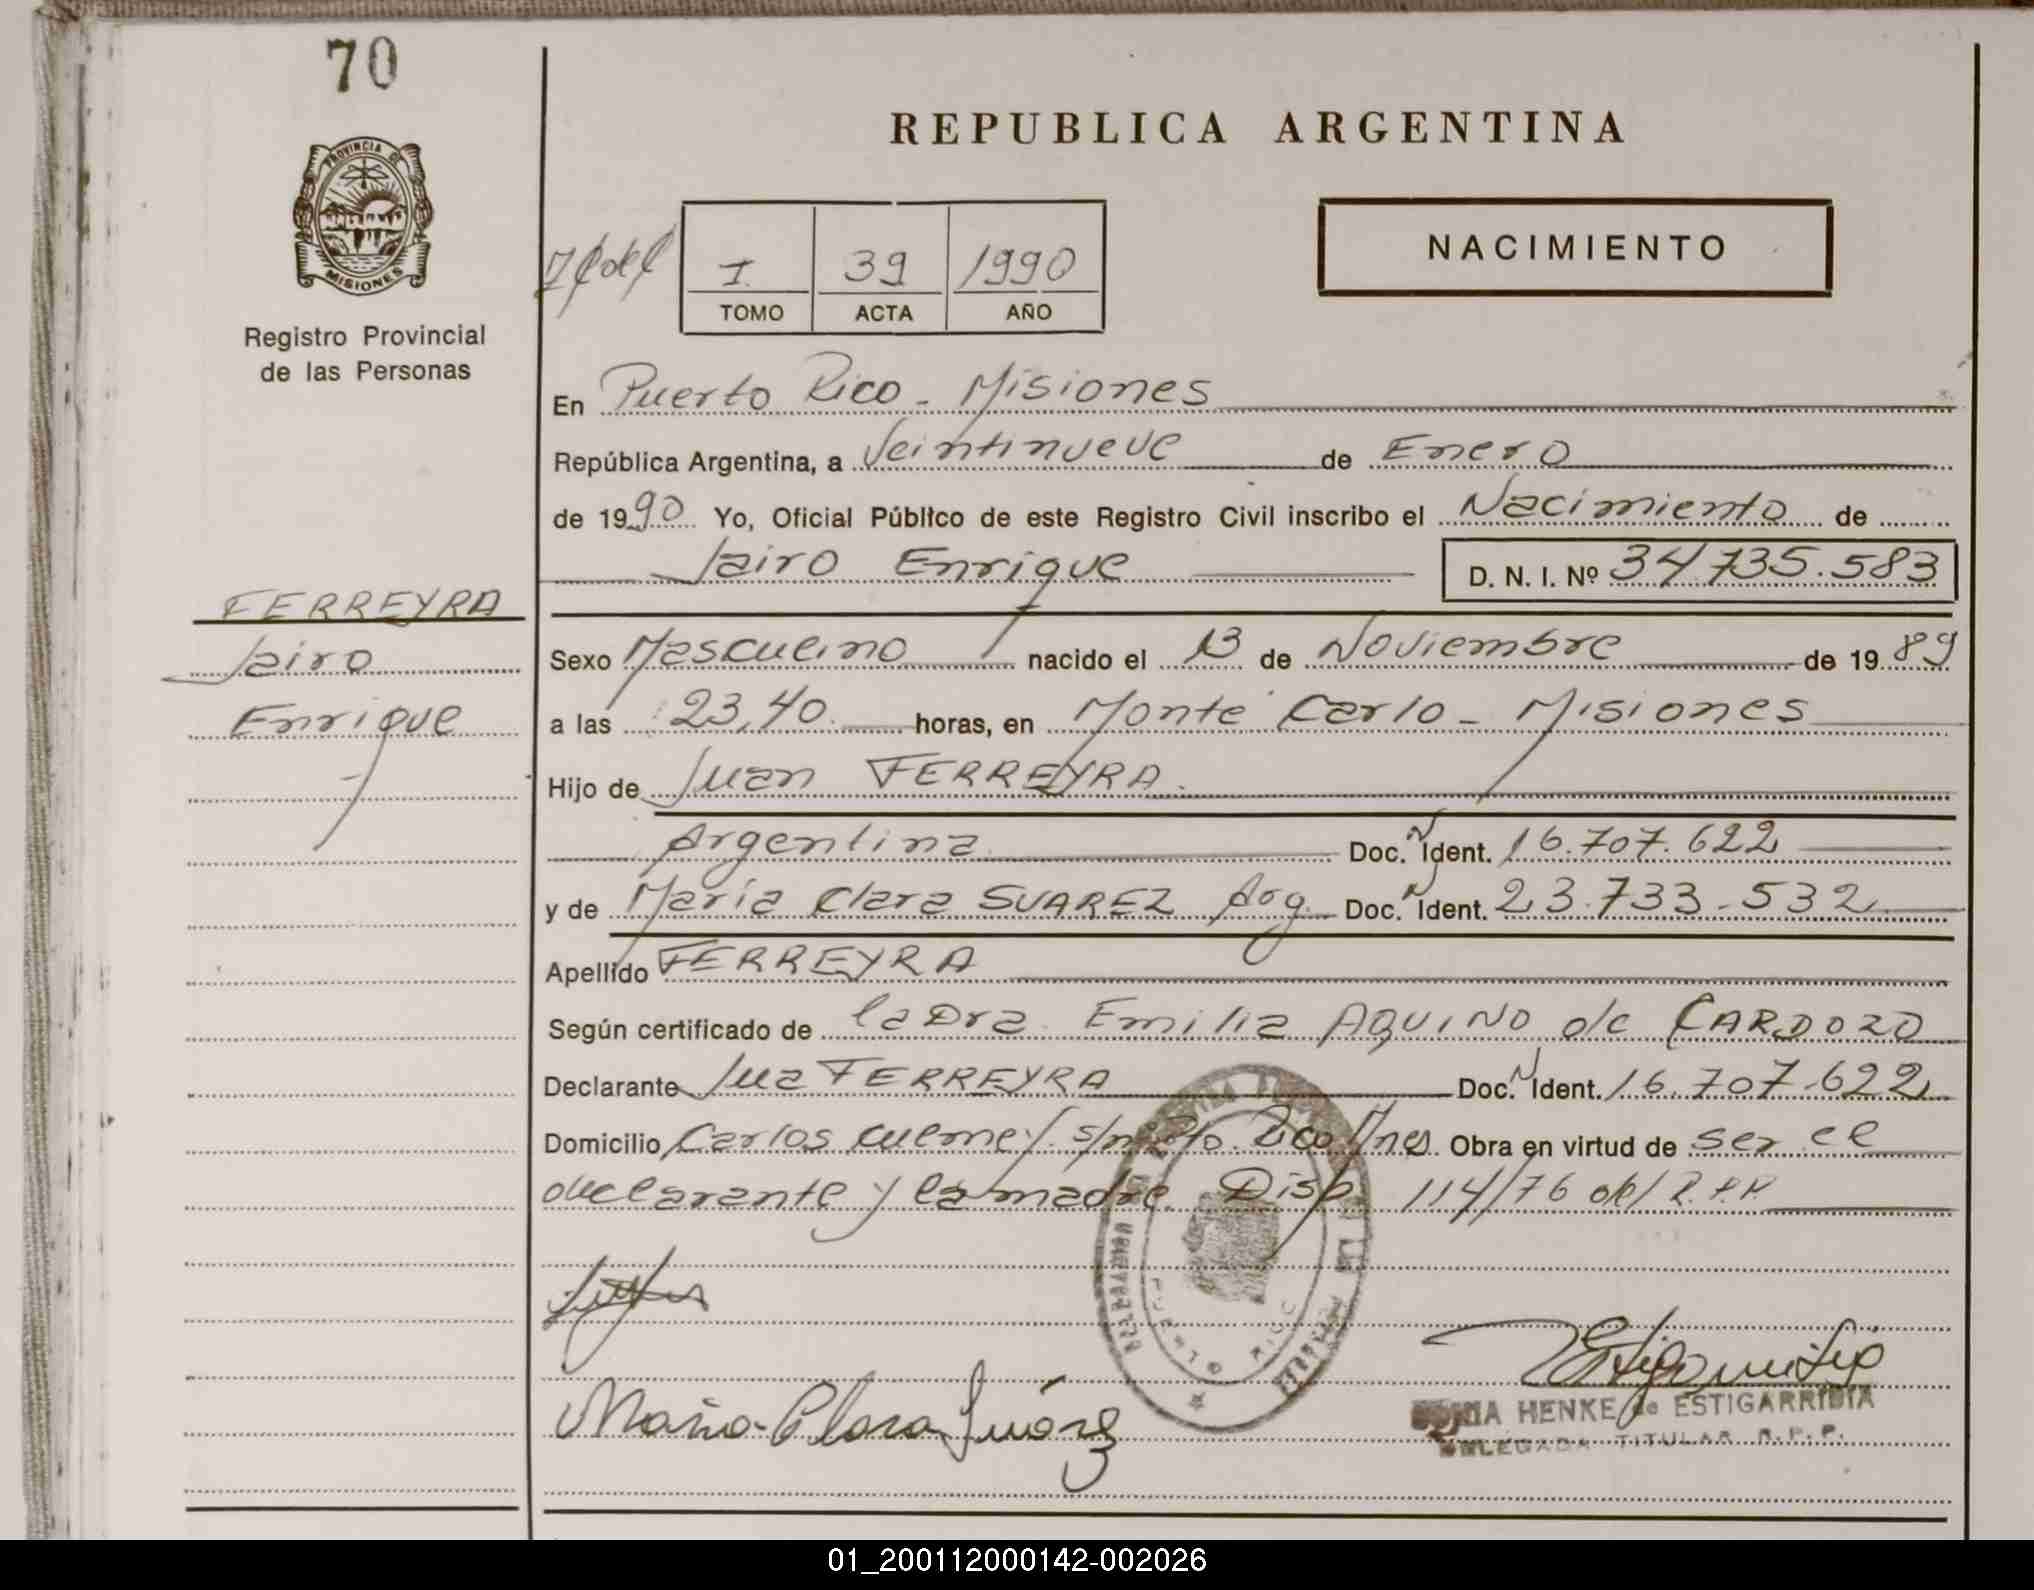 70
REPUBLICA ARGENTINA
PROVINCIA DE
MISIONES
Registro Provincial
de las Personas
I 39 1990
TOMO ACTA AÑO
NACIMIENTO
En Puerto Rico - Misiones
República Argentina, a Veintinueve de Enero
de 1990 Yo, Oficial Público de este Registro Civil inscribo el Nacimiento de
Jairo Enrique D. N. I. Nº 34.735.583
FERREYRA
Jairo
Enrique
Sexo Masculino nacido el 13 de Noviembre de 1989
a las 23,40 horas, en Monte Carlo - Misiones
Hijo de Juan FERREYRA.
Argentina Doc. N Ident. 16.707.622
y de María Clara SUAREZ Arg. Doc. N Ident. 23.733.532
Apellido FERREYRA
Según certificado de la Dra. Emilia AQUINO de CARDOZO
Declarante Jua FERREYRA Doc. N Ident. 16.707.622
Domicilio Carlos Culmey s/n Pto. Rico Mnes Obra en virtud de ser el
declarante y la madre. Disp. 114/76 del R.P.P.
DELEGACION
PUERTO RICO
María Clara Suárez
HENKE de ESTIGARRIBIA
DELEGADA TITULAR R.P.P.
01_200112000142-002026